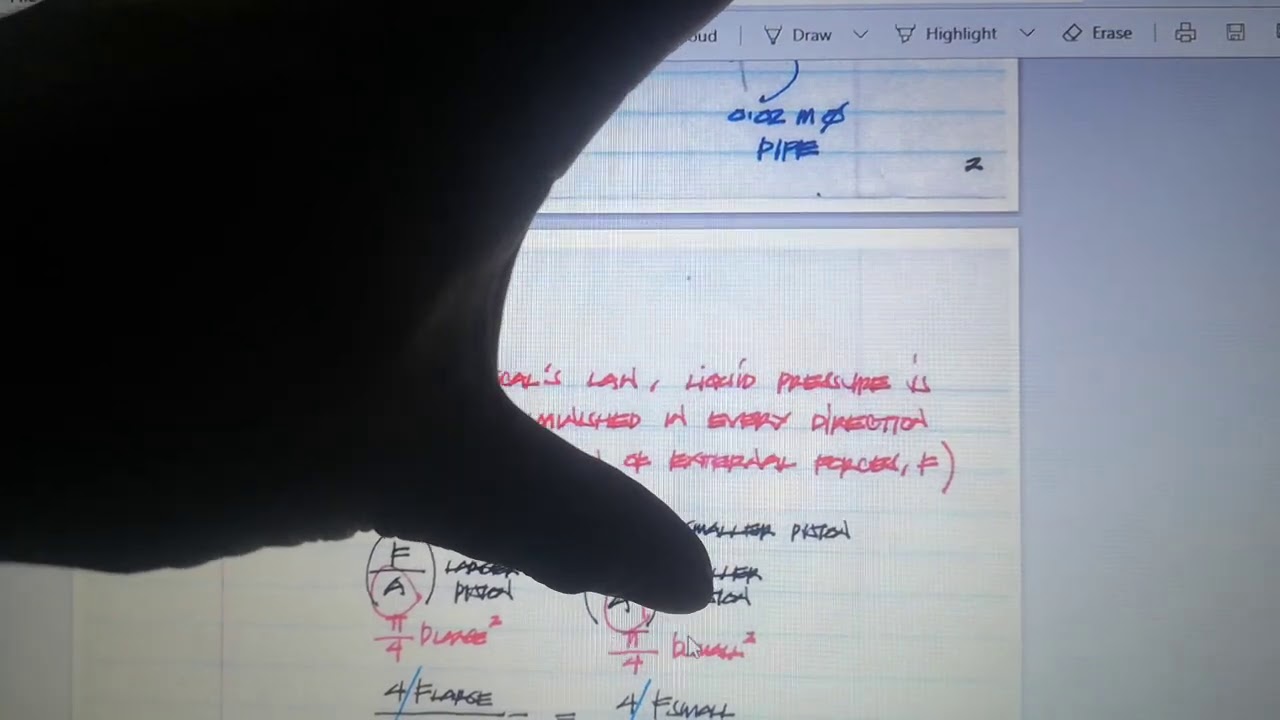 Draw Highlight Erase
0.02 m ϕ
PIPE
2
LAW, LIQUID PRESSURE IS
IN EVERY DIRECTION
OF EXTERNAL FORCES, F)
SMALLER PISTON
(F/A) LARGER PISTON
π/4 DLARGE²
π/4 DSMALL²
4/FLARGE = 4/FSMALL